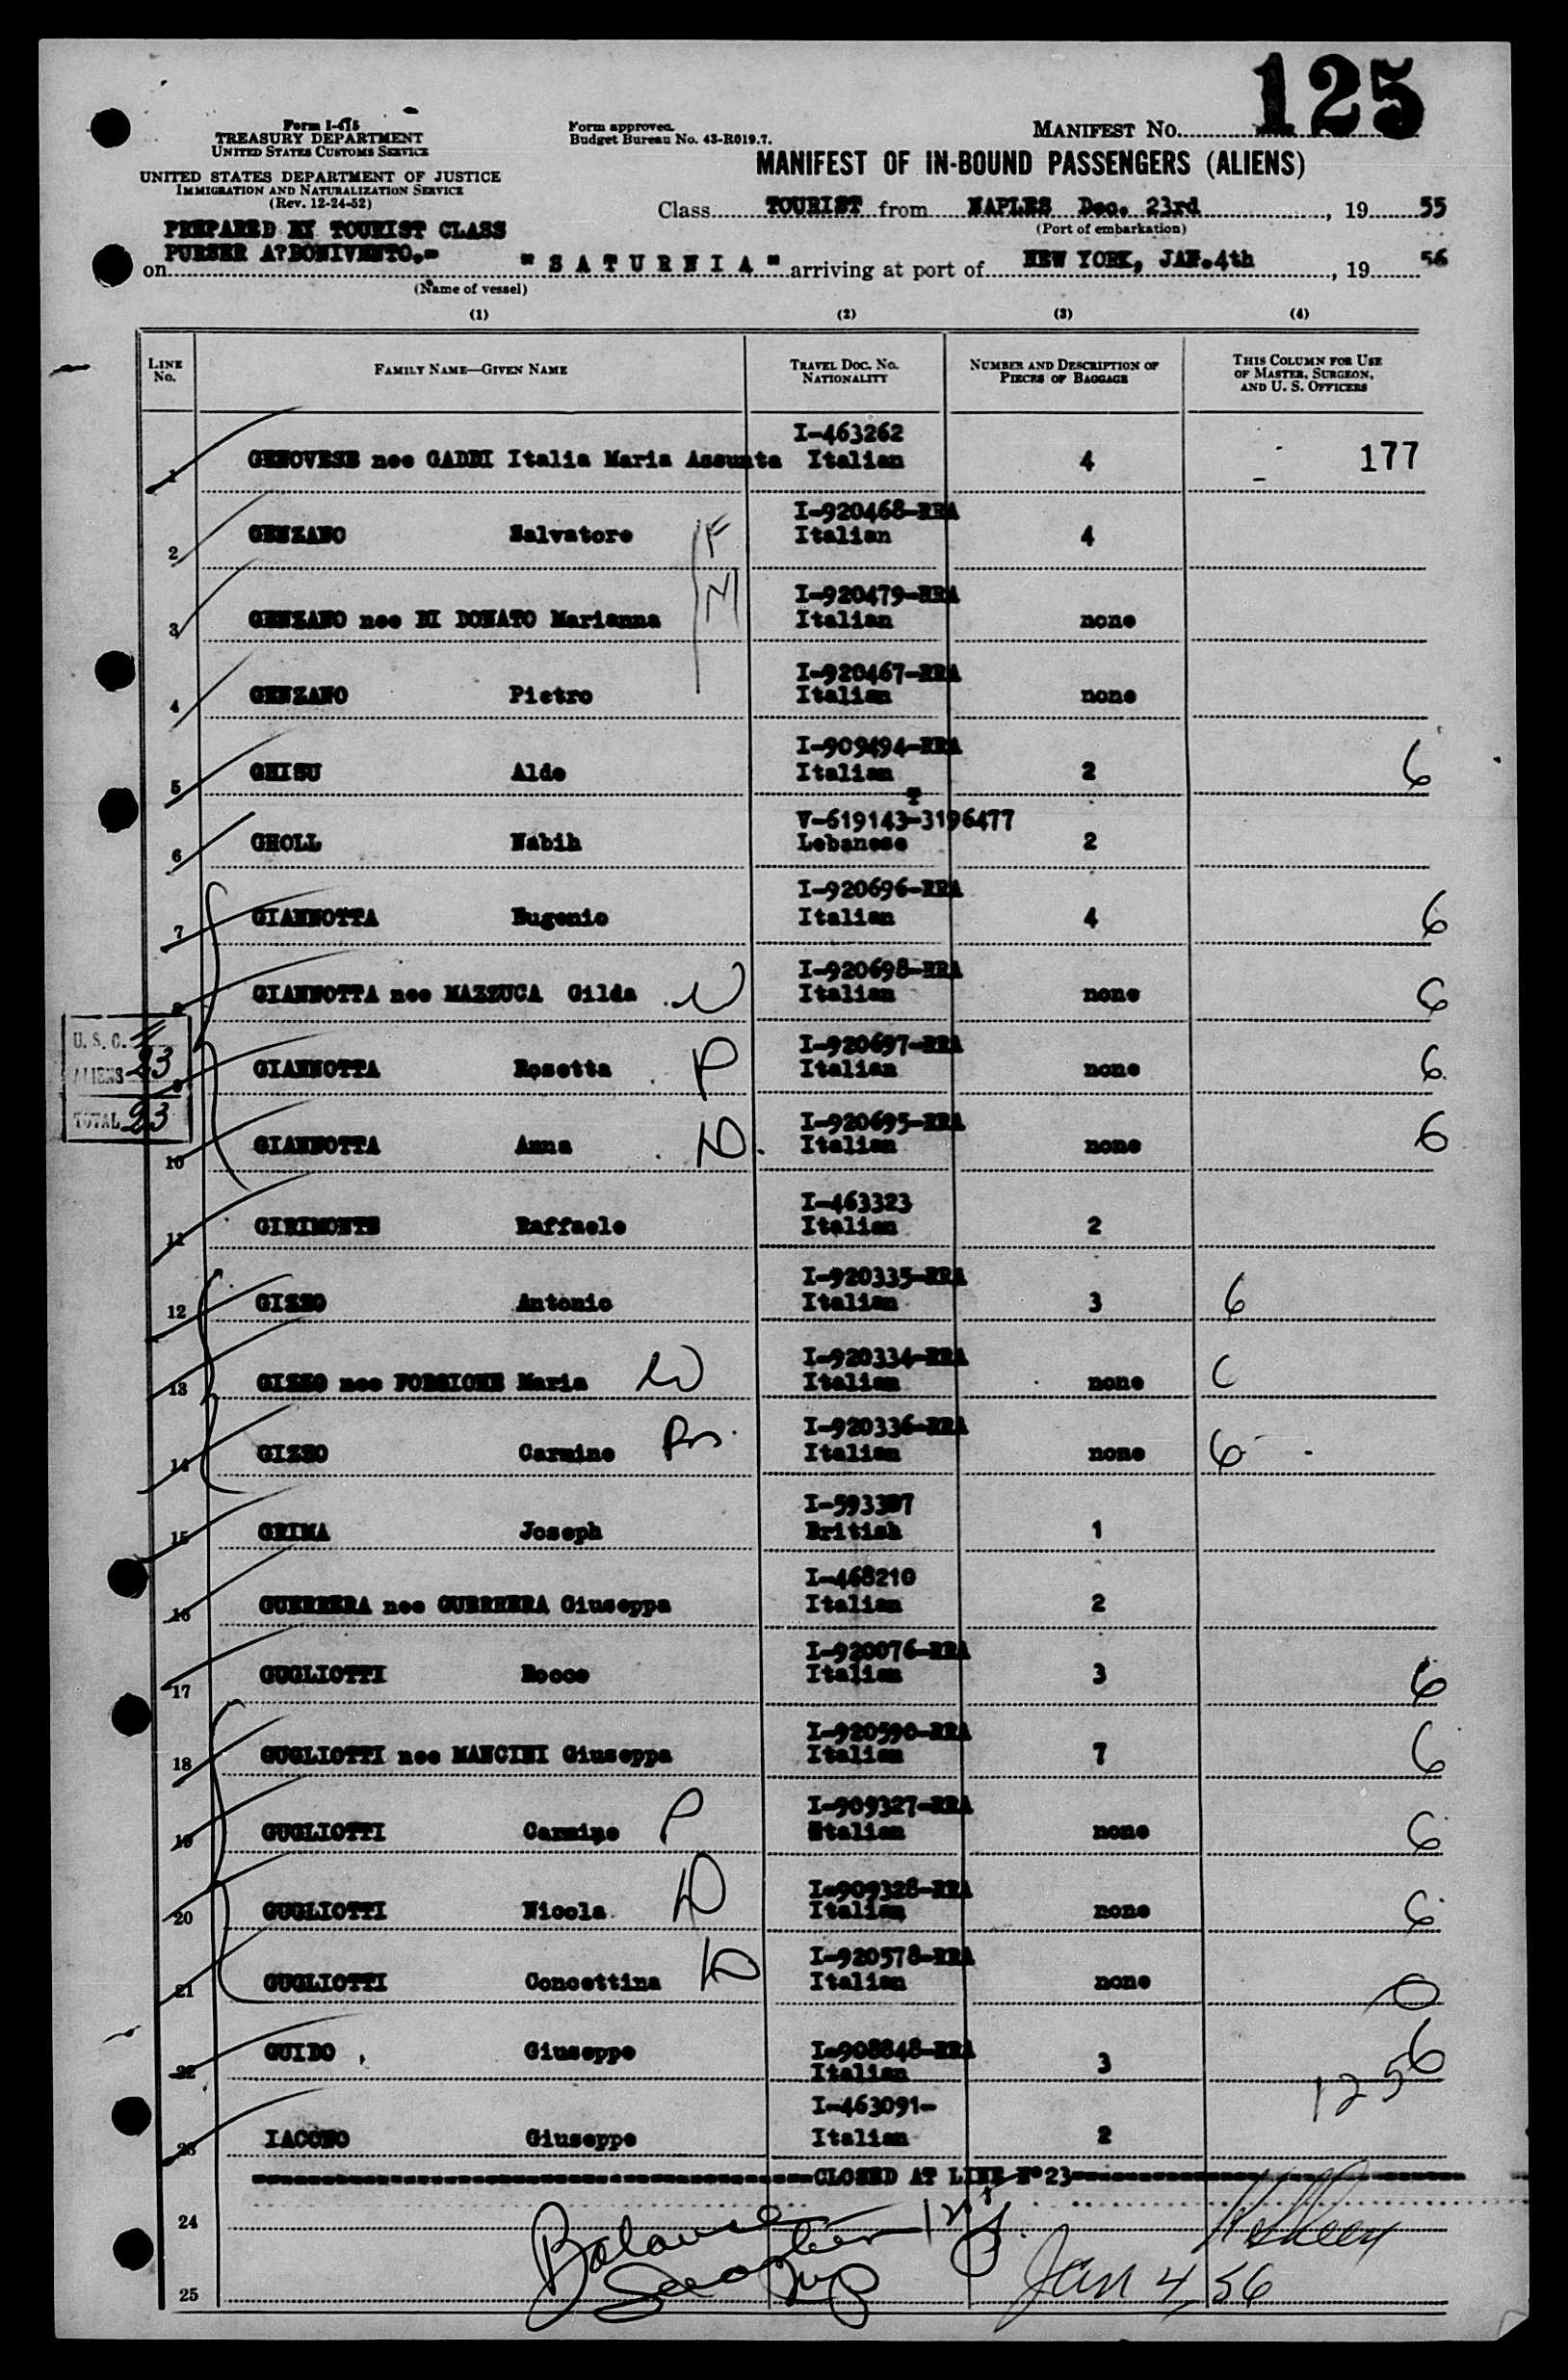 125
Form I-415
TREASURY DEPARTMENT
UNITED STATES CUSTOMS SERVICE
UNITED STATES DEPARTMENT OF JUSTICE
IMMIGRATION AND NATURALIZATION SERVICE
(Rev. 12-24-52)
Form approved.
Budget Bureau No. 43-R019.7.
MANIFEST NO.
MANIFEST OF IN-BOUND PASSENGERS (ALIENS)
Class TOURIST from NAPLES Dec. 23rd, 19 55
(Port of embarkation)
PREPARED BY TOURIST CLASS
PURSER A?BONIVENTO.=
on "SATURNIA" arriving at port of NEW YORK, JAN.4th, 19 56
(Name of vessel)
(1) (2) (3) (4)
LINE No. FAMILY NAME—GIVEN NAME TRAVEL DOC. NO. NATIONALITY NUMBER AND DESCRIPTION OF PIECES OF BAGGAGE THIS COLUMN FOR USE OF MASTER, SURGEON, AND U. S. OFFICERS
I-463262
1 GENOVESE nee GADDI Italia Maria Assunta Italian 4 177
I-920468-RRA
2 GENZANO Salvatore F Italian 4
I-920479-RRA
3 GENZANO nee DI DONATO Marianna M Italian none
I-920467-RRA
4 GENZANO Pietro Italian none
I-909494-RRA
5 GHISU Aldo Italian 2 6
V-619143-3196477
6 GHOLL Nabih Lebanese 2
I-920696-RRA
7 GIANNOTTA Eugenio Italian 4 6
I-920698-RRA
8 GIANNOTTA nee MAZZUCA Gilda W Italian none 6
I-920697-RRA
9 GIANNOTTA Rosetta D Italian none 6
I-920695-RRA
10 GIANNOTTA Anna D. Italian none 6
U. S. C.
ALIENS 23
TOTAL 23
I-463323
11 GIRIMONTE Raffaele Italian 2
I-920335-RRA
12 GIZZO Antonio Italian 3 6
I-920334-RRA
13 GIZZO nee FORGIONE Maria W Italian none 6
I-920336-RRA
14 GIZZO Carmine Italian none 6
I-593307
15 GRIMA Joseph British 1
I-468210
16 GUERRERA nee GUERRERA Giuseppa Italian 2
I-920076-RRA
17 GUGLIOTTI Rocco Italian 3 6
I-920590-RRA
18 GUGLIOTTI nee MANCINI Giuseppa Italian 7 6
I-909327-RRA
19 GUGLIOTTI Carmine Italian none 6
I-909328-RRA
20 GUGLIOTTI Nicola D Italian none 6
I-920578-RRA
21 GUGLIOTTI Concettina D Italian none
I-908848-RRA
22 GUIDO , Giuseppe Italian 3 6
125
I-463091-
23 IACONO Giuseppe Italian 2
CLOSED AT LINE N°23
24
25
Jan 4, 56